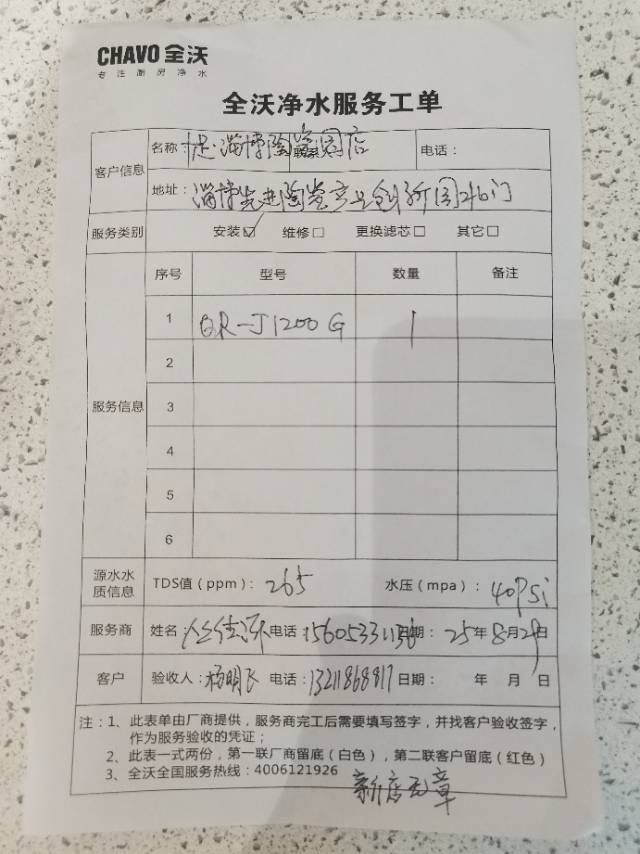 CHAVO 全沃
专注厨房净水
全沃净水服务工单
客户信息
名称: 淄博陶瓷园店 联系人 电话:
地址: 淄博先进陶瓷产业创新园北门
服务类别 安装☑ 维修□ 更换滤芯□ 其它□
服务信息
序号 型号 数量 备注
1 QR-J1200G 1
2
3
4
5
6
源水水质信息 TDS值(ppm): 265 水压(mpa): 40Psi
服务商 姓名: 电话: 日期: 25年8月29日
客户 验收人: 杨明飞 电话: 13211868817 日期: 年 月 日
注:1、此表单由厂商提供,服务商完工后需要填写签字,并找客户验收签字,
作为服务验收的凭证;
2、此表一式两份,第一联厂商留底(白色),第二联客户留底(红色)
3、全沃全国服务热线:4006121926
新店无章